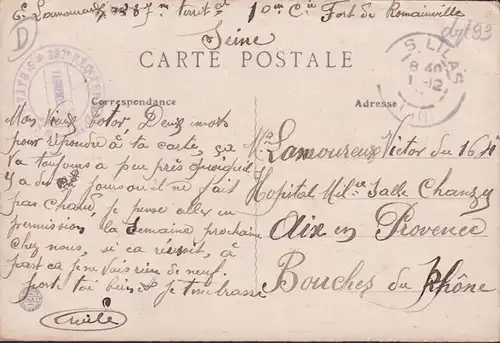 E. Lamoureux 287me territal 10me Cie Fort de Romainville
Seine
CARTE POSTALE
Correspondance
Adresse
S. LILAS
8 40
1-12
Mon Vieux Totor, Deux mots
pour répondre à ta carte, ça
va toujours a peu près quoiqu'il
y a des jours ou il ne fait
pas chaud, je pense aller en
permission la semaine prochaine
chez nous, si ça réussit, à
part ça je ne vais rien de neuf.
porte toi bien je t'embrasse
Emile
Mr Lamoureux Victor du 164
Hopital Milre Salle Chanzy
Aix en Provence
Bouches du Rhône